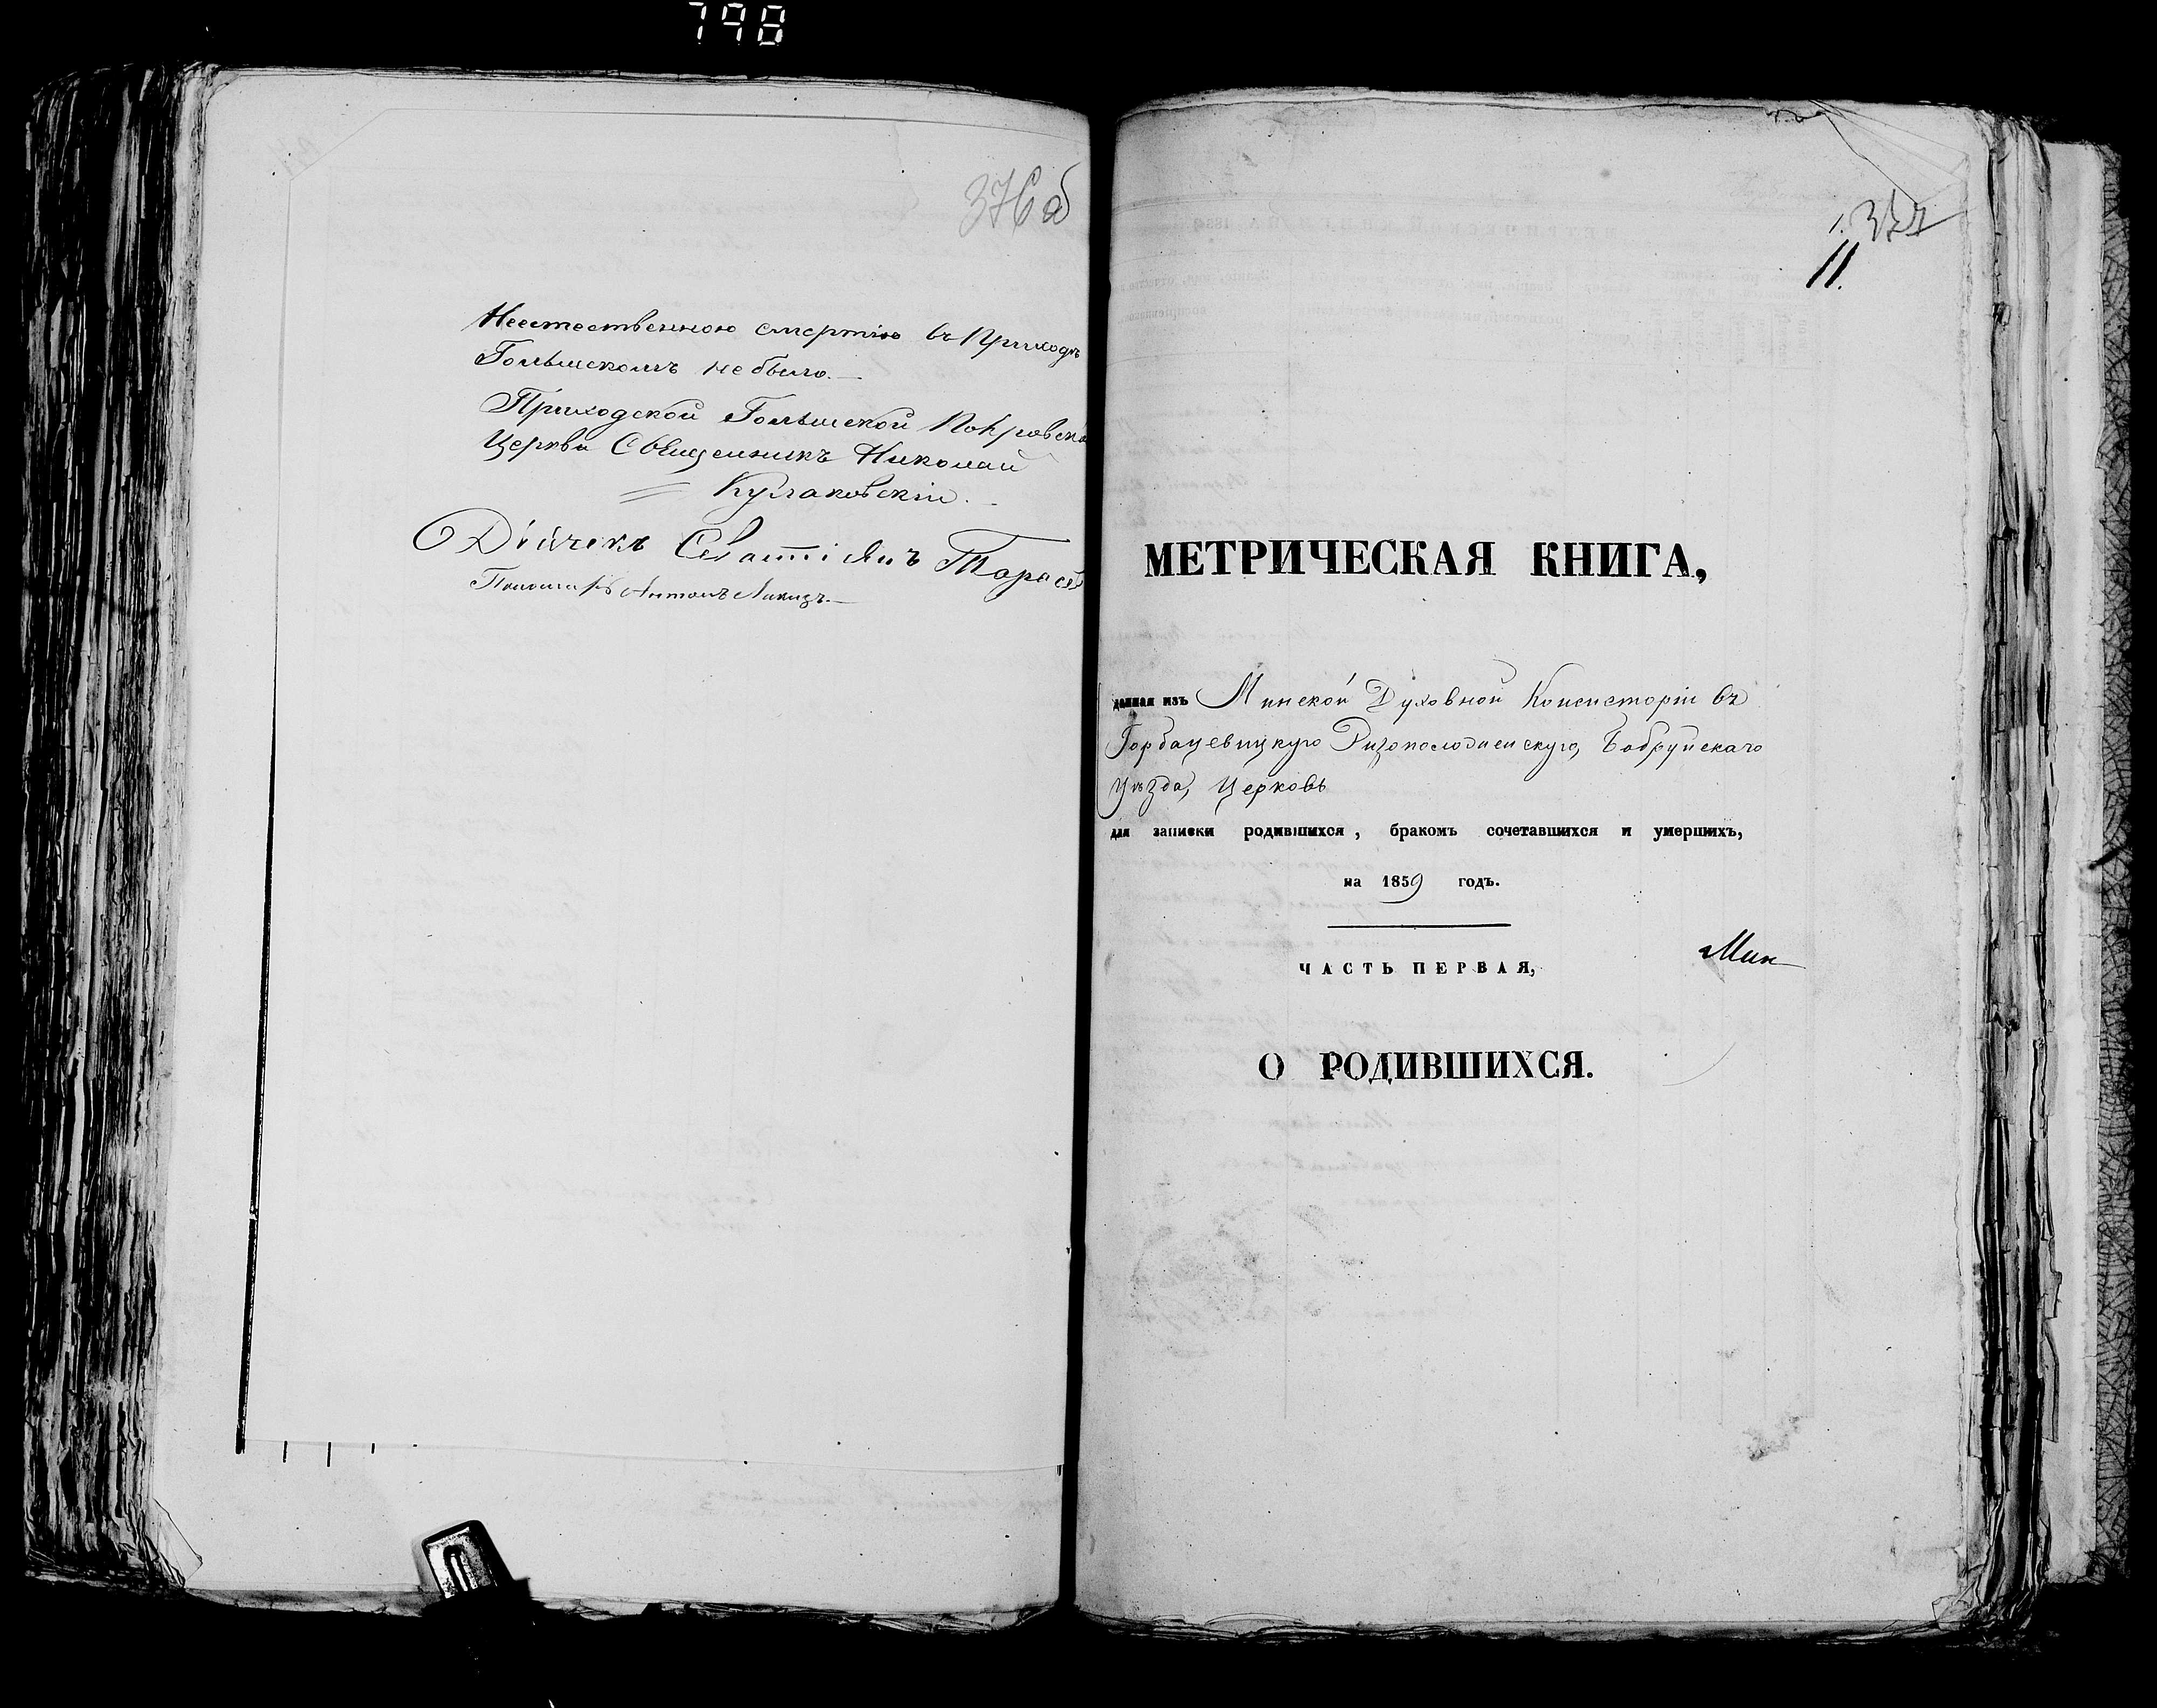 798
376 об
Неестественною смертію въ Приходѣ
Голышскомъ не было.
Приходской Голышской Покровск
Церкви Священникъ Николай
Кулаковскій.
Дьячекъ Севастіянъ Тарасе
Пономарь Антонъ
1. 377
11.
МЕТРИЧЕСКАЯ КНИГА,
данная изъ Минской Духовной Консисторіи въ
Горбацевицкую Ризоположенскую, Бобруйскаго
уѣзда, Церковь
для записки родившихся, бракомъ сочетавшихся и умершихъ,
на 1859 годъ.
ЧАСТЬ ПЕРВАЯ,
Мин
О РОДИВШИХСЯ.